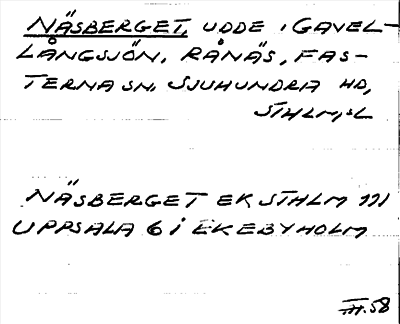 NÄSBERGET, UDDE I GAVEL-
LÅNGSJÖN, RÅNÄS, FAS-
TERNA SN, SJUHUNDRA HD,
STHLMS L
NÄSBERGET EK STHLM 111
UPPSALA 6 i EKEBYHOLM
III.58